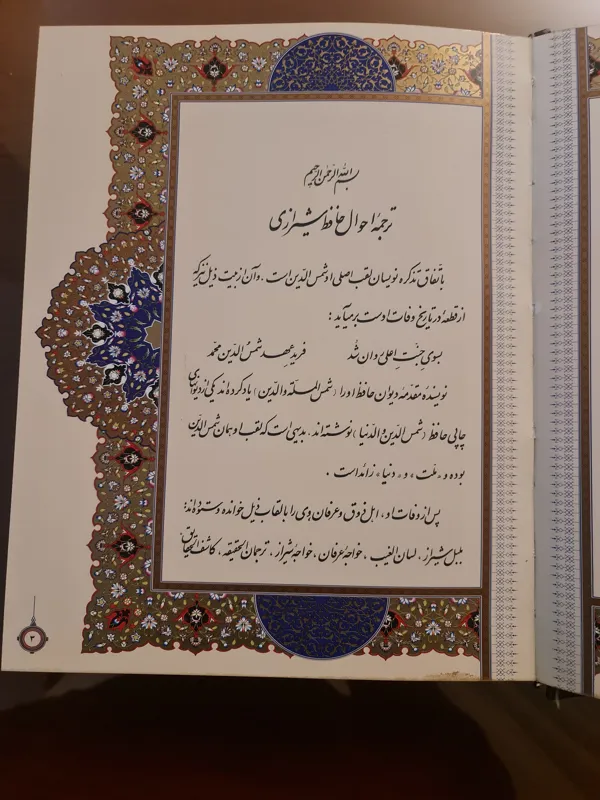 بسم الله الرحمن الرحیم
ترجمه احوال حافظ شیرازی
باتفاق تذکره نویسان لقب اصلی او شمس الدین است . و آن از بیت ذیل نیز که
از قطعه در تاریخ وفات اوست برمیآید :
بسوی جنّت اعلی روان شد فرید عهد شمس الدّین محمّد
نویسنده مقدمه دیوان حافظ او را (شمس الملّة والدّین) یاد کرده اند یکی از دیوانهای
چاپی حافظ (شمس الدّین والدّنیا) نوشته اند . بدیهی است که لقب او همان شمس الدّین
بوده و «ملت» و «دنیا» زائد است .
پس از وفات او ، اهل ذوق و عرفان وی را بالقاب ذیل خوانده و ستوده اند :
بلبل شیراز ، لسان الغیب ، خواجۀ عرفان ، خواجۀ شیراز ، ترجمان الحقیقه ، کاشف الحقایق
۳